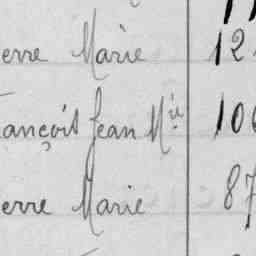 erre Marie 12
ançois Jean Mie 10
erre Marie 87